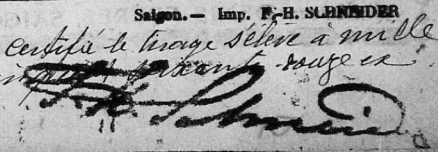 Saigon.— Imp. F.-H. SCHNEIDER
Certifié le tirage s'élève à mille
soixante
F. H. Schneider